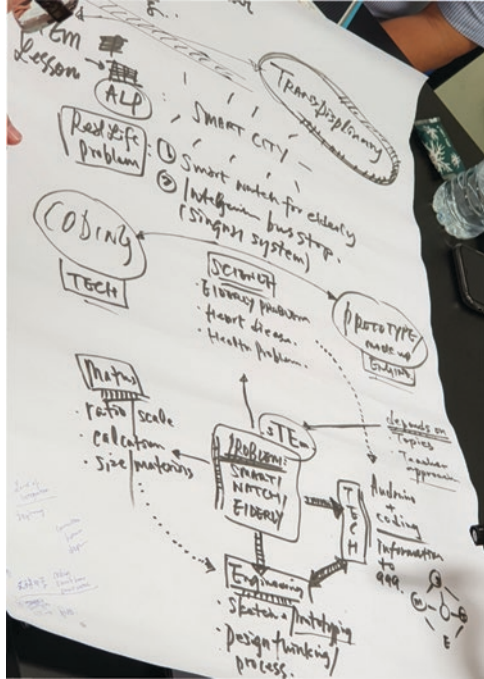 EM
Lesson
ALP
TRANSDISPLINARY
SMART CITY
Real life
Problem :
① Smart watch for elderly
② Intelligenium bus stop.
(singasy system)
CODING
TECH
SCIENCE
· Elderly problem
· Heart disease.
· Health Problem.
PROTOTYPE/
made up
Maths
· ratio scale
· calcation
· size/materials
STEM
PROBLEM:
SMART/
WATCH/
ELDERLY
depends on
· Topics
· Teacher
approach
TECH
coding
Information
to
Engineering
· sketch → /prototyping
· Design thinking/
process.
E